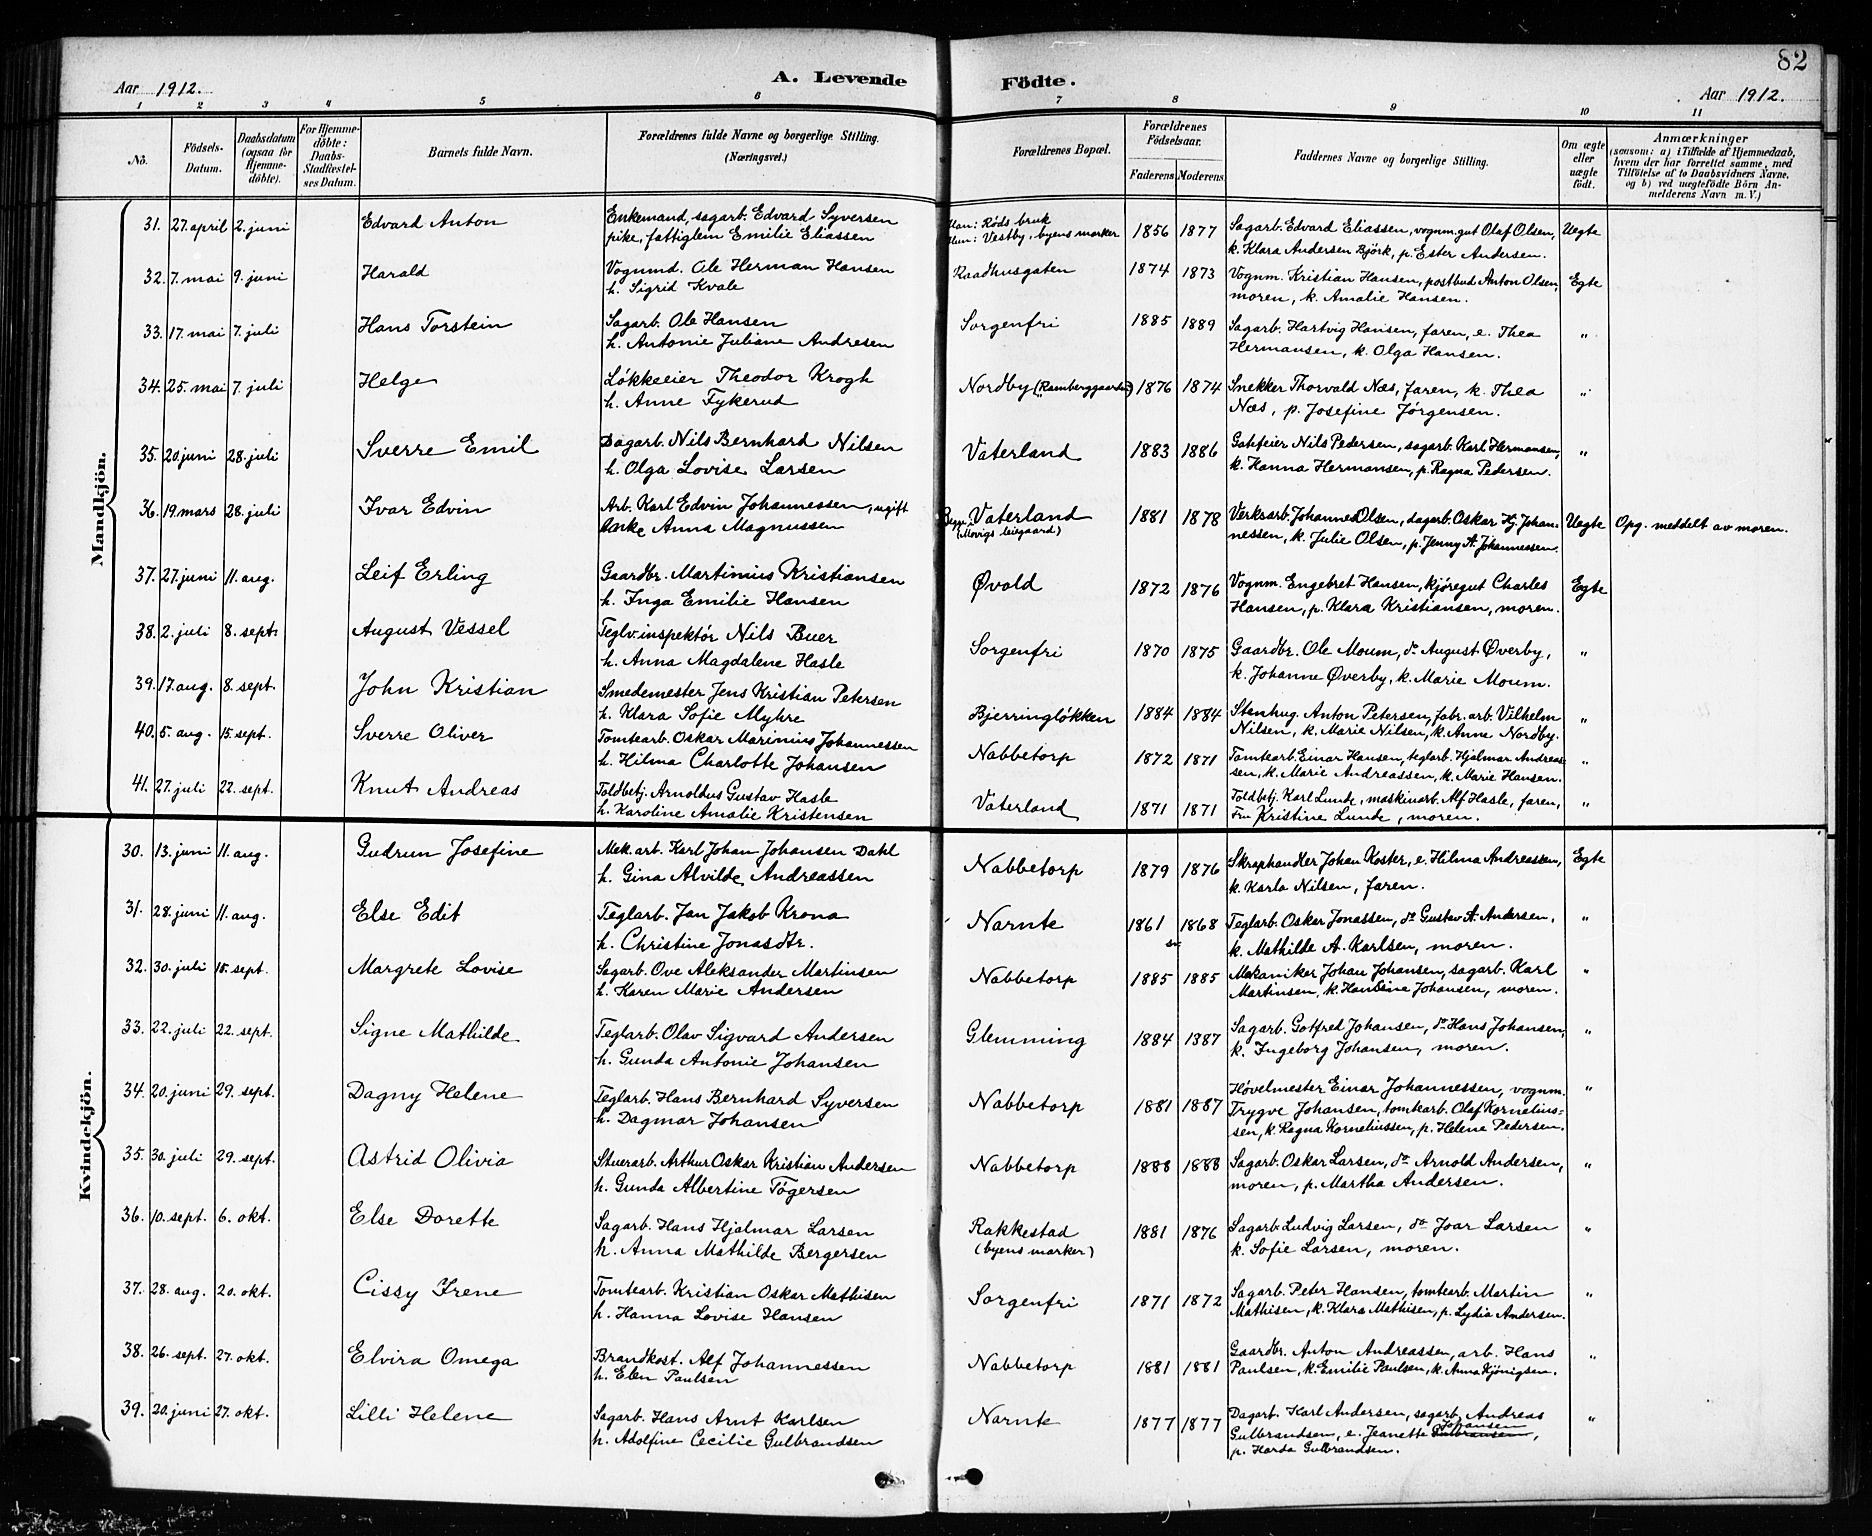 82
Aar 1912.
A. Levende Födte.
Aar 1912.
1 2 3 4 5 6 7 8 9 10 11
No.
Födsels-Datum.
Daabsdatum (ogsaa for Hjemme-döbte).
For Hjemme-döbte: Daabs-Stadfæstel-ses Datum.
Barnets fulde Navn.
Forældrenes fulde Navne og borgerlige Stilling. (Næringsvei.)
Forældrenes Bopæl.
Forældrenes Födselsaar.
Faderens
Moderens
Faddernes Navne og borgerlige Stilling.
Om ægte eller uægte födt.
Anmærkninger (saasom: a) i Tilfælde af Hjemmedaab, hvem der har forrettet samme, med Tilföielse af to Daabsvidners Navne, og b) ved uægtefödte Börn An-melderens Navn m. V.)
Mandkjön.
31. 27. april 2. juni Edvard Anton Enkemand, sagarb. Edvard Syversen Han: Røds bruk 1856 1877 Sagarb. Edvard Eliassen, vognm.gut Olaf Olsen, Uegte
pike, fattiglem Emilie Eliassen Hun: Vestby, byens marker k. Klara Andersen Björk, p. Ester Andersen.
32. 7. mai 9. juni Harald Vognmd. Ole Herman Hansen Raadhusgaten 1874 1873 Vognm. Kristian Hansen, postbud Anton Olsen, Egte
h. Sigrid Kvale moren, k. Amalie Hansen.
33. 17. mai 7. juli Hans Torstein Sagarb. Ole Hansen Sorgenfri 1885 1889 Sagarb. Hartvig Hansen, faren, e. Thea "
h. Antonie Juliane Andresen Hermansen, k. Olga Hansen.
34. 25. mai 7. juli Helge Løkkeeier Theodor Krogh Nordby (Ramberggaarden) 1876 1874 Snekker Thorvald Næs, faren, k. Thea "
h. Anne Fykerud Næs, p. Josefine Jørgensen.
35. 20. juni 28. juli Sverre Emil Dagarb. Nils Bernhard Nilsen Vaterland 1883 1886 Gatefeier Nils Pedersen, sagarb. Karl Hermansen, "
h. Olga Lovise Larsen k. Hanna Hermansen, p. Ragna Pedersen.
36. 19. mars 28. juli Ivar Edvin Arb. Karl Edvin Johannessen, ugift Begge: Vaterland 1881 1878 Verksarb. Johannes Olsen, dagarb. Oskar Hj. Johan- Uegte Opg. meddelt av moren.
Enke Anna Magnussen (Movigs leiegaard) nessen, k. Julie Olsen, p. Jenny A. Johannessen.
37. 27. juni 11. aug. Leif Erling Gaardbr. Martinius Kristiansen Øvold 1872 1876 Vognm. Engebret Hansen, kjøregut Charles Egte
h. Inga Emilie Hansen Hansen, p. Klara Kristiansen, moren.
38. 2. juli 8. sept. August Vessel Teglv.inspektør Nils Buer Sorgenfri 1870 1875 Gaardbr. Ole Moum, do August Øverby, "
h. Anna Magdalene Hasle k. Johanne Øverby, k. Marie Moum.
39. 17. aug. 8. sept. John Kristian Smedemester Jens Kristian Petersen Bjerringløkken 1884 1884 Stenhug. Anton Petersen, fabr. arb. Vilhelm "
h. Klara Sofie Myhre Nilsen, k. Marie Nilsen, k. Anne Nordby.
40. 5. aug. 15. sept. Sverre Oliver Tomtearb. Oskar Marinius Johannessen Nabbetorp 1872 1871 Tomtearb. Einar Hansen, teglarb. Hjalmar Andreas- "
h. Hilma Charlotte Johansen sen, k. Marie Andreassen, k. Marie Hansen.
41. 27. juli 22. sept. Knut Andreas Toldbetj. Arnoldus Gustav Hasle Vaterland 1871 1871 Toldbetj. Karl Lunde, maskinarb. Alf Hasle, faren, "
h. Karoline Amalie Kristensen Fru Kristine Lunde, moren.
Kvindekjön.
30. 13. juni 11. aug. Gudrun Josefine Mek. arb. Karl Johan Johansen Dahl Nabbetorp 1879 1876 Skraphandler Johan Koster, e. Hilma Andreassen, Egte
h. Gina Alvilde Andreassen k. Karla Nilsen, faren.
31. 28. juni 11. aug. Else Edit Teglarb. Jan Jakob Krona Narnte 1861 1868 Teglarb. Oskar Jonassen, do Gustav A. Andersen, "
h. Christine Jonasdtr. k. Mathilde A. Karlsen, moren.
32. 30. juli 15. sept. Margrete Lovise Sagarb. Ove Aleksander Martinsen Nabbetorp 1885 1885 Mekaniker Johan Johansen, sagarb. Karl "
h. Karen Marie Andersen Martinsen, k. Hansine Johansen, moren.
33. 22. juli 22. sept. Signe Mathilde Teglarb. Olav Sigvard Andersen Glemming 1884 1887 Sagarb. Gotfred Johansen, do Hans Johansen, "
h. Gunda Antonie Johansen k. Ingeborg Johansen, moren.
34. 20. juni 29. sept. Dagny Helene Teglarb. Hans Bernhard Syversen Nabbetorp 1881 1887 Høvelmester Einar Johannessen, vognm. "
h. Dagmar Johansen Trygve Johansen, tomtearb. Olaf Kornelius-
sen, k. Ragna Korneliussen, p. Helene Pedersen.
35. 30. juli 29. sept. Astrid Olivia Stuerarb. Arthur Oskar Kristian Andersen Nabbetorp 1888 1888 Sagarb. Oskar Larsen, do Arnold Andersen, "
h. Gunda Albertine Tøgersen moren, p. Martha Andersen.
36. 10. sept. 6. okt. Else Dorette Sagarb. Hans Hjalmar Larsen Rakkestad 1881 1876 Sagarb. Ludvig Larsen, do Joar Larsen "
h. Anna Mathilde Bergersen (byens marker) k. Sofie Larsen, moren.
37. 28. aug. 20. okt. Cissy Irene Tomtearb. Kristian Oskar Mathisen Sorgenfri 1871 1872 Sagarb. Peter Hansen, tomtearb. Martin "
h. Hanna Lovise Hansen Mathisen, k. Klara Mathisen, p. Lydia Andersen.
38. 26. sept. 27. okt. Elvira Omega Brandkost. Alf Johannessen Nabbetorp 1881 1881 Gaardbr. Anton Andreassen, arb. Hans "
h. Elen Paulsen Paulsen, k. Emilie Paulsen, k. Anna Kjönigsen.
39. 20. juni 27. okt. Lilli Helene Sagarb. Hans Arnt Karlsen Narnte 1877 1877 Dagarb. Karl Andersen, sagarb. Andreas "
h. Adolfine Cecilie Gulbrandsen Gulbrandsen, e. Jeanette Gulbransen Johansen,
p. Harda Gulbrandsen.